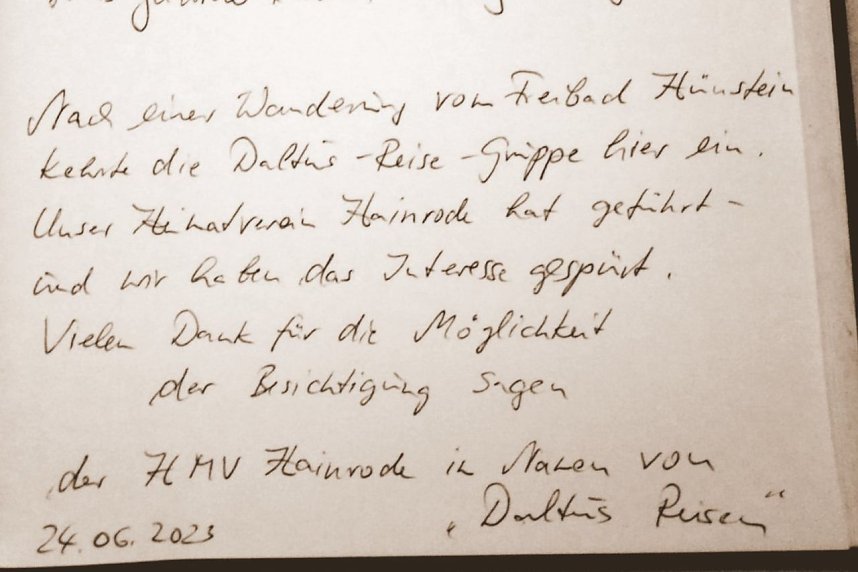 Nach einer Wanderung vom Freibad Hünstein
kehrte die Daltus-Reise-Gruppe hier ein.
Unser Heimatverein Hainrode hat geführt -
und wir haben das Interesse gespürt.
Vielen Dank für die Möglichkeit
der Besichtigung sagen
der HMV Hainrode in Namen von
24.06.2023 „Daltus Reisen“